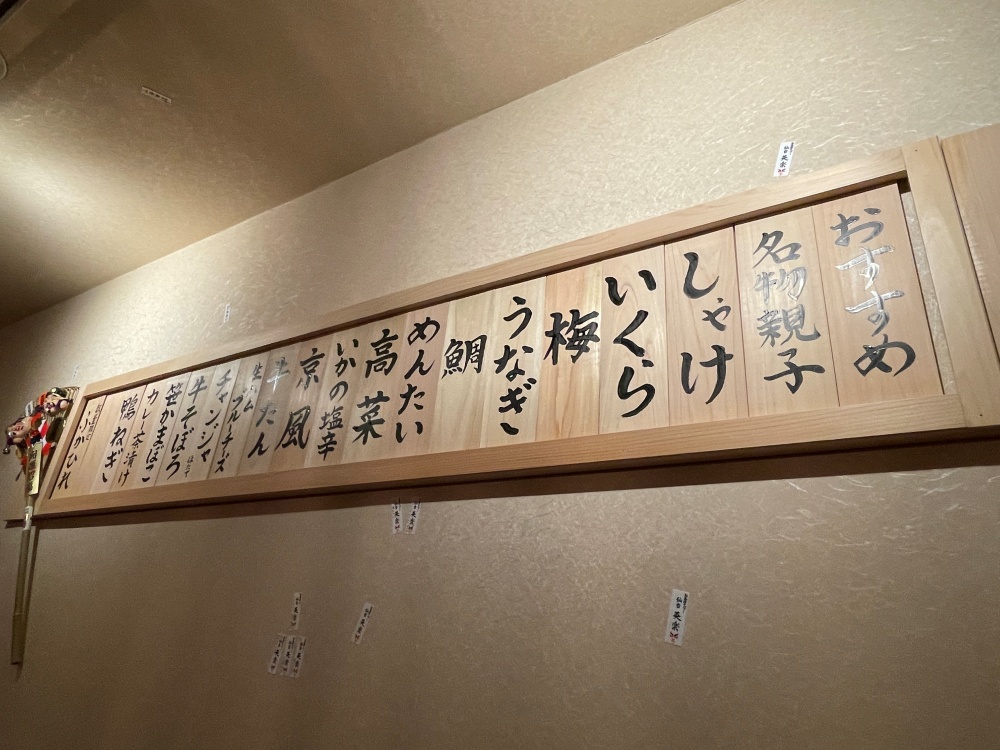 おすすめ
名物親子
しゃけ
いくら
梅
うなぎ
鯛
めんたい
高菜
いかの塩辛
京風
牛たん
生ハム
ブルーチーズ
チャンジャ
牛そぼろ
笹かまぼこ
カレー茶漬け
鴨ねぎ
ふかひれ
仙台